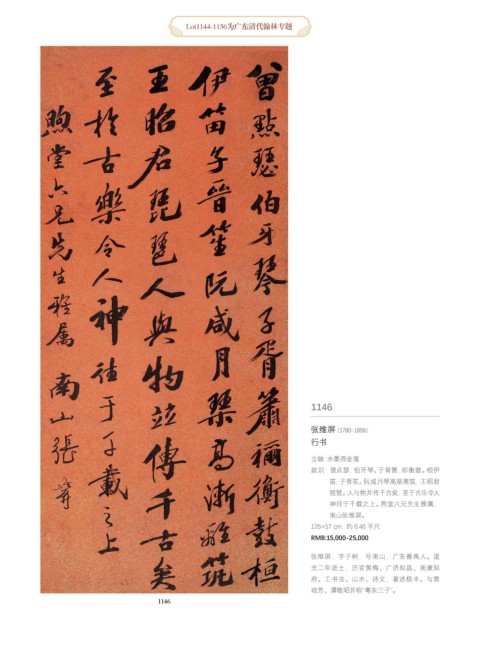 Lot1144-1156为广东清代翰林专题
曾點瑟伯牙琴子胥簫禰衡鼓桓
伊笛子晉笙阮咸月琴高漸離筑
王昭君琵琶人與物竝傳千古矣
至於古樂令人神往于千載之上
煦堂六兄先生雅属 南山張
1146
1146
张维屏 (1780-1859)
行书
立轴 水墨洒金笺
款识:曾点瑟、伯牙琴。子胥箫、祢衡鼓。桓伊
笛、子晋笙。阮咸月琴高渐离筑、王昭君
琵琶。人与物并传千古矣,至于古乐令人
神往于千载之上。煦堂六兄先生雅属,
南山张维屏。
126×57 cm 约 6.46 平尺
RMB:15,000-25,000
张维屏,字子树,号南山,广东番禺人。道
光二年进士,历官黄梅、广济知县,南康知
府。工书法、山水、诗文,著述极丰。与黄
培芳、谭敬昭并称“粤东三子”。